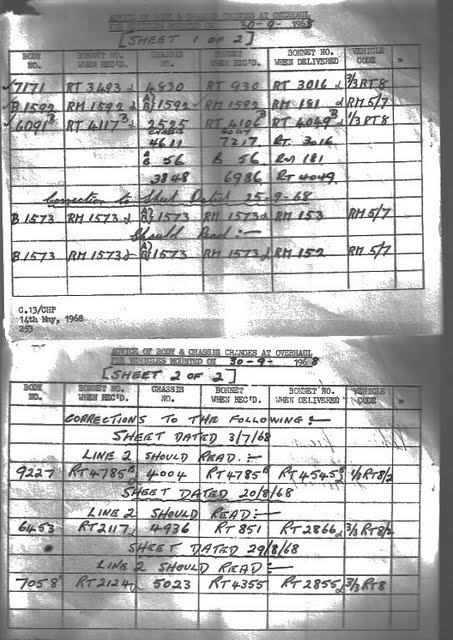 ADVICE OF BODY & CHASSIS CHANGES AT OVERHAUL
FOR VEHICLES MOUNTED ON 30-9- 1968
[SHEET 1 OF 2]
BODY NO. BONNET NO. WHEN REC'D. CHASSIS NO. BONNET WHEN REC'D. BONNET NO. WHEN DELIVERED VEHICLE CODE
7171 RT 3493 4830 RT 930 RT 3016 3/3RT8
B1592 RM 1592 A)B)1592 RM 1592 RM 181 RM 5/7
6091 RT 4117B 2525 RT 4106B RT 4049B 1/3 RT8
CHASSIS BODY
4611 7217 RT. 3016
A B 56 B 56 RM 181
3848 6986 RT 4049
Correction to Sheet Dated 25-9-68
B 1573 RM 1573 A)B)1573 RM 1573 RM 153 RM 5/7
Should Read:-
B 1573 RM 1573 A)B)1573 RM 1573 RM 152 RM 5/7
C.13/CHP
14th May, 1968
253
ADVICE OF BODY & CHASSIS CHANGES AT OVERHAUL
FOR VEHICLES MOUNTED ON 30-9- 1968
[SHEET 2 OF 2]
BODY NO. BONNET NO. WHEN REC'D. CHASSIS NO. BONNET WHEN REC'D. BONNET NO. WHEN DELIVERED VEHICLE CODE
CORRECTIONS TO THE FOLLOWING:-
SHEET DATED 3/7/68
LINE 2 SHOULD READ:-
9227 RT4785B 4004 RT4785B RT4545B 1/2 RT8/2
SHEET DATED 20/8/68
LINE 2 SHOULD READ:-
6453 RT2117 4936 RT 851 RT2866 3/3 RT8/2
SHEET DATED 29/8/68
LINE 2 SHOULD READ:-
7058 RT2124 5023 RT4355 RT2855 3/3 RT8